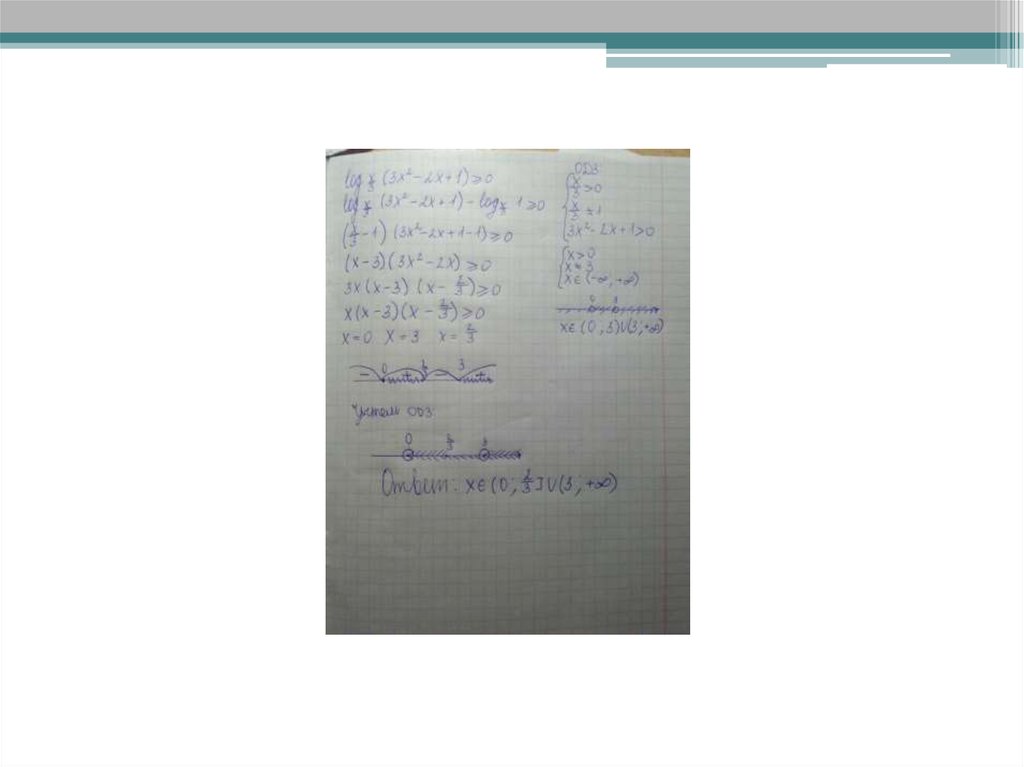 log x/3 (3x² - 2x + 1) ≥ 0
log x/3 (3x² - 2x + 1) - log x/3 1 ≥ 0
(x/3 - 1) (3x² - 2x + 1 - 1) ≥ 0
(x - 3)(3x² - 2x) ≥ 0
3x (x - 3) (x - 2/3) ≥ 0
x (x - 3)(x - 2/3) ≥ 0
x = 0 x = 3 x = 2/3
- 0 + 2/3 - 3 +
Учтем ОДЗ:
0 2/3 3
Ответ: x ∈ (0; 2/3] ∪ (3; +∞)
ОДЗ:
x/3 > 0
x/3 ≠ 1
3x² - 2x + 1 > 0
x > 0
x ≠ 3
x ∈ (-∞, +∞)
0 3
x ∈ (0; 3) ∪ (3; +∞)